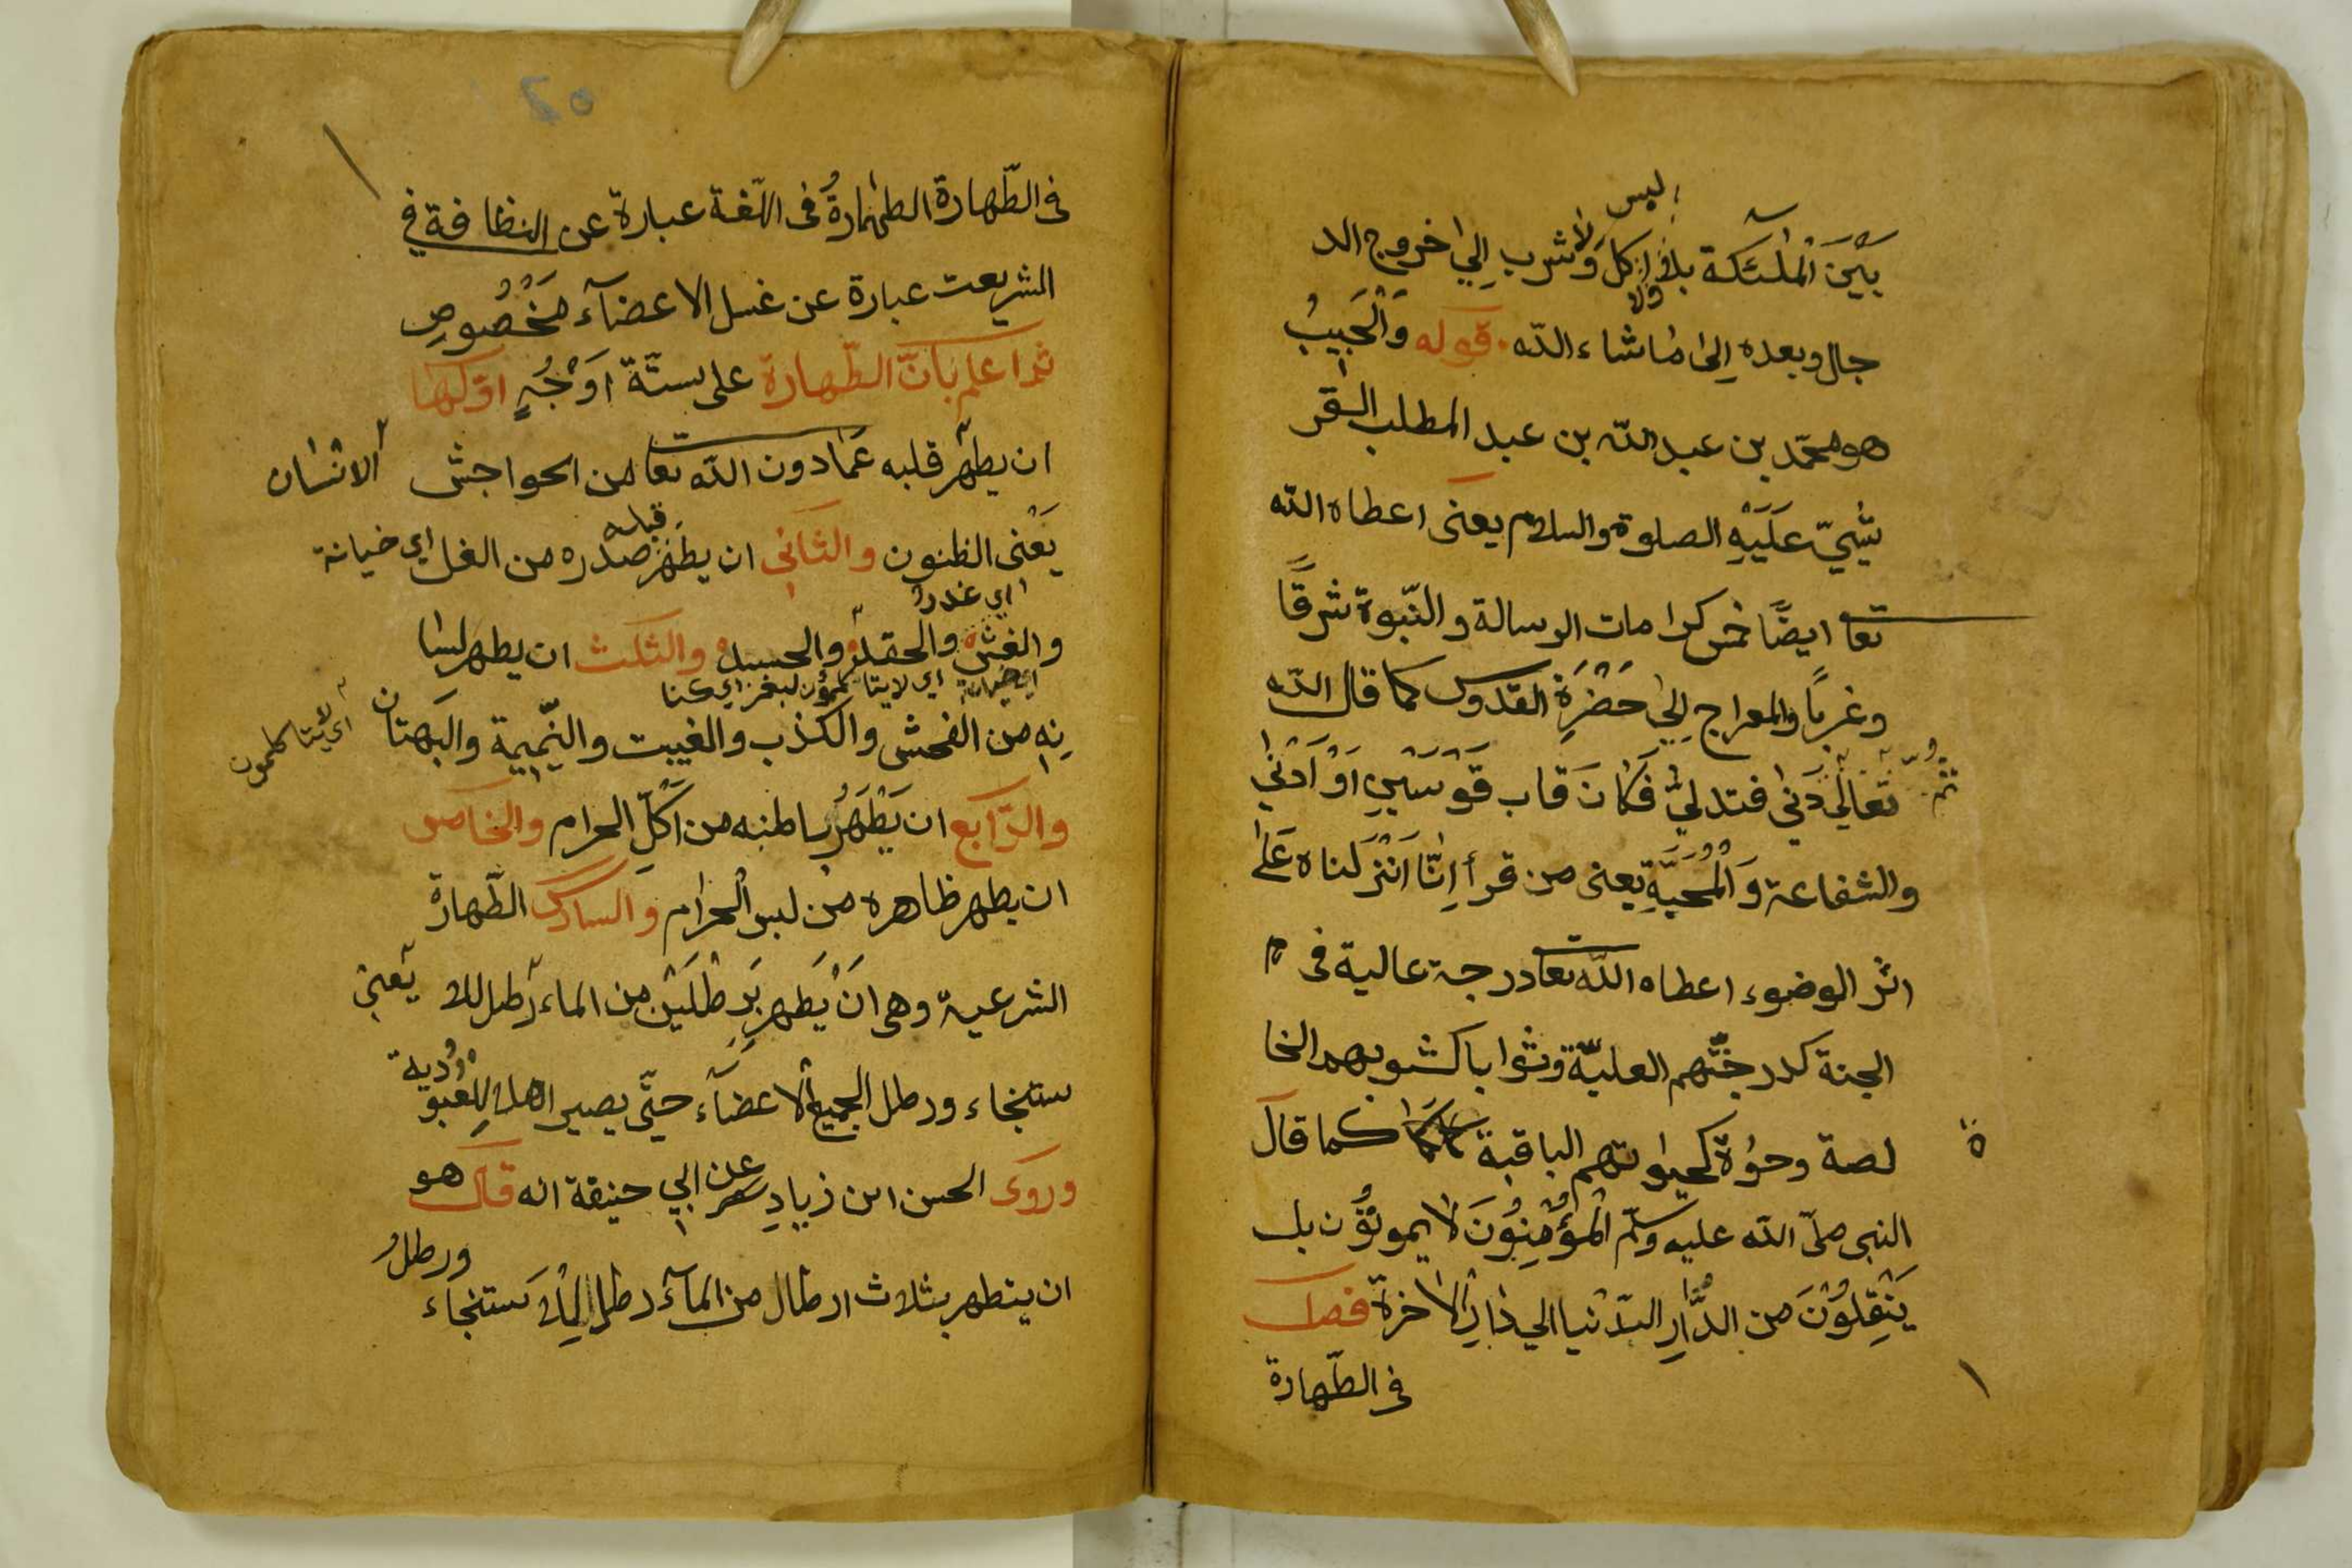 بليس
بَيْنَ الْمَلٰئكة بلا اكل ولا شرب اِلىٰ خروج الد
جال وبعده اِلىٰ ماشاء اللّٰه قوله وَالْحَبِيبُ
هو محمّد بن عبد اللّٰه بن عبد المطلب القر
شيّ عَلَيْهِ الصلوة والسلام يعنى اعطاه اللّٰه
تعا ايضًا خمس كرامات الرسالة والنّبوة شرقًا
وغربًا والمعراج اِلىٰ حَضْرَةِ القدّوس كما قال اللّٰه
تعالىٰ ثُمَّ دَنىٰ فتدلىٰ فَكَانَ قَاب قَوْسَيْنِ اَوْ اَدْنىٰ
والشفاعة وَالْمُحَبَّةِ يعنى من قرأ اِنّا اَنْزَلناه عَلىٰ
اثر الوضوء اعطاه اللّٰه تعا درجة عالية فى
الجنة كدرجتهم العليّة وثوابا كثوبهم الخا
لصة وحيٰوة كحيٰوتهم الباقية كما قال
النبى صلّى اللّٰه عليه وسلّم اَلْمُؤْمِنُونَ لا يموتُوْن بل
يَنْقِلُوْنَ من الدَّارِ الدّنيا الي دَارِ الاٰخرة فصل
فى الطّهارة
فى الطّهارة الطهارةُ فى اللّغة عبارة عن النظافة في
الشريعت عبارة عن غسل الاعضآء مَخْصُوصٍ
ثم اعلم بانّ الطّهارة على ستّة اَوْجُهٍ اوّلها
ان يطهّر قلبه عَمّا دون اللّٰه تعا من الحواجش الانسان
يَعْنى الظنون والثّانى ان يطهّر صدره من الغل اي خيانة
قبله
اي غدر
والغشّ والحقد والحسد والثلث ان يطهر لسا
نِه من الفحش والكذب والغيبت والنّمِيمة والبَهتان
اى لا يتكلمون
والرّابع ان يَطْهَرُ باطنه من اَكْلِ الحرام والخامس
ان يطهر ظاهره من لبس الحرام والسادس الطّهارة
الشرعية وهى انْ يَطهر بَرِطْلَيْنِ من الماء رَطل للا يَعنى
ستنجاء ورطل لجميع الاعضآء حتّى يصير اهلا لِلْعُبُوْدية
وروى الحسن ابن زيادِ عن ابي حنيفة انه قال هو
ان يتطهر بثلاث ارطال من المآء رطل لِلْاِستنجاء
ورطل